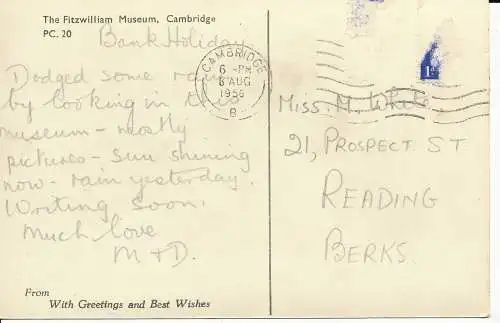 The Fitzwilliam Museum, Cambridge
PC. 20
Bank Holiday
Dodged some rain
by looking in this
museum - mostly
pictures - sun shining
now - rain yesterday.
Writing soon.
Much love
M + D.
From
With Greetings and Best Wishes
CAMBRIDGE
6 - PM
8 AUG
1956
B
1d
Miss. M. White.
21, PROSPECT ST
READING
BERKS.